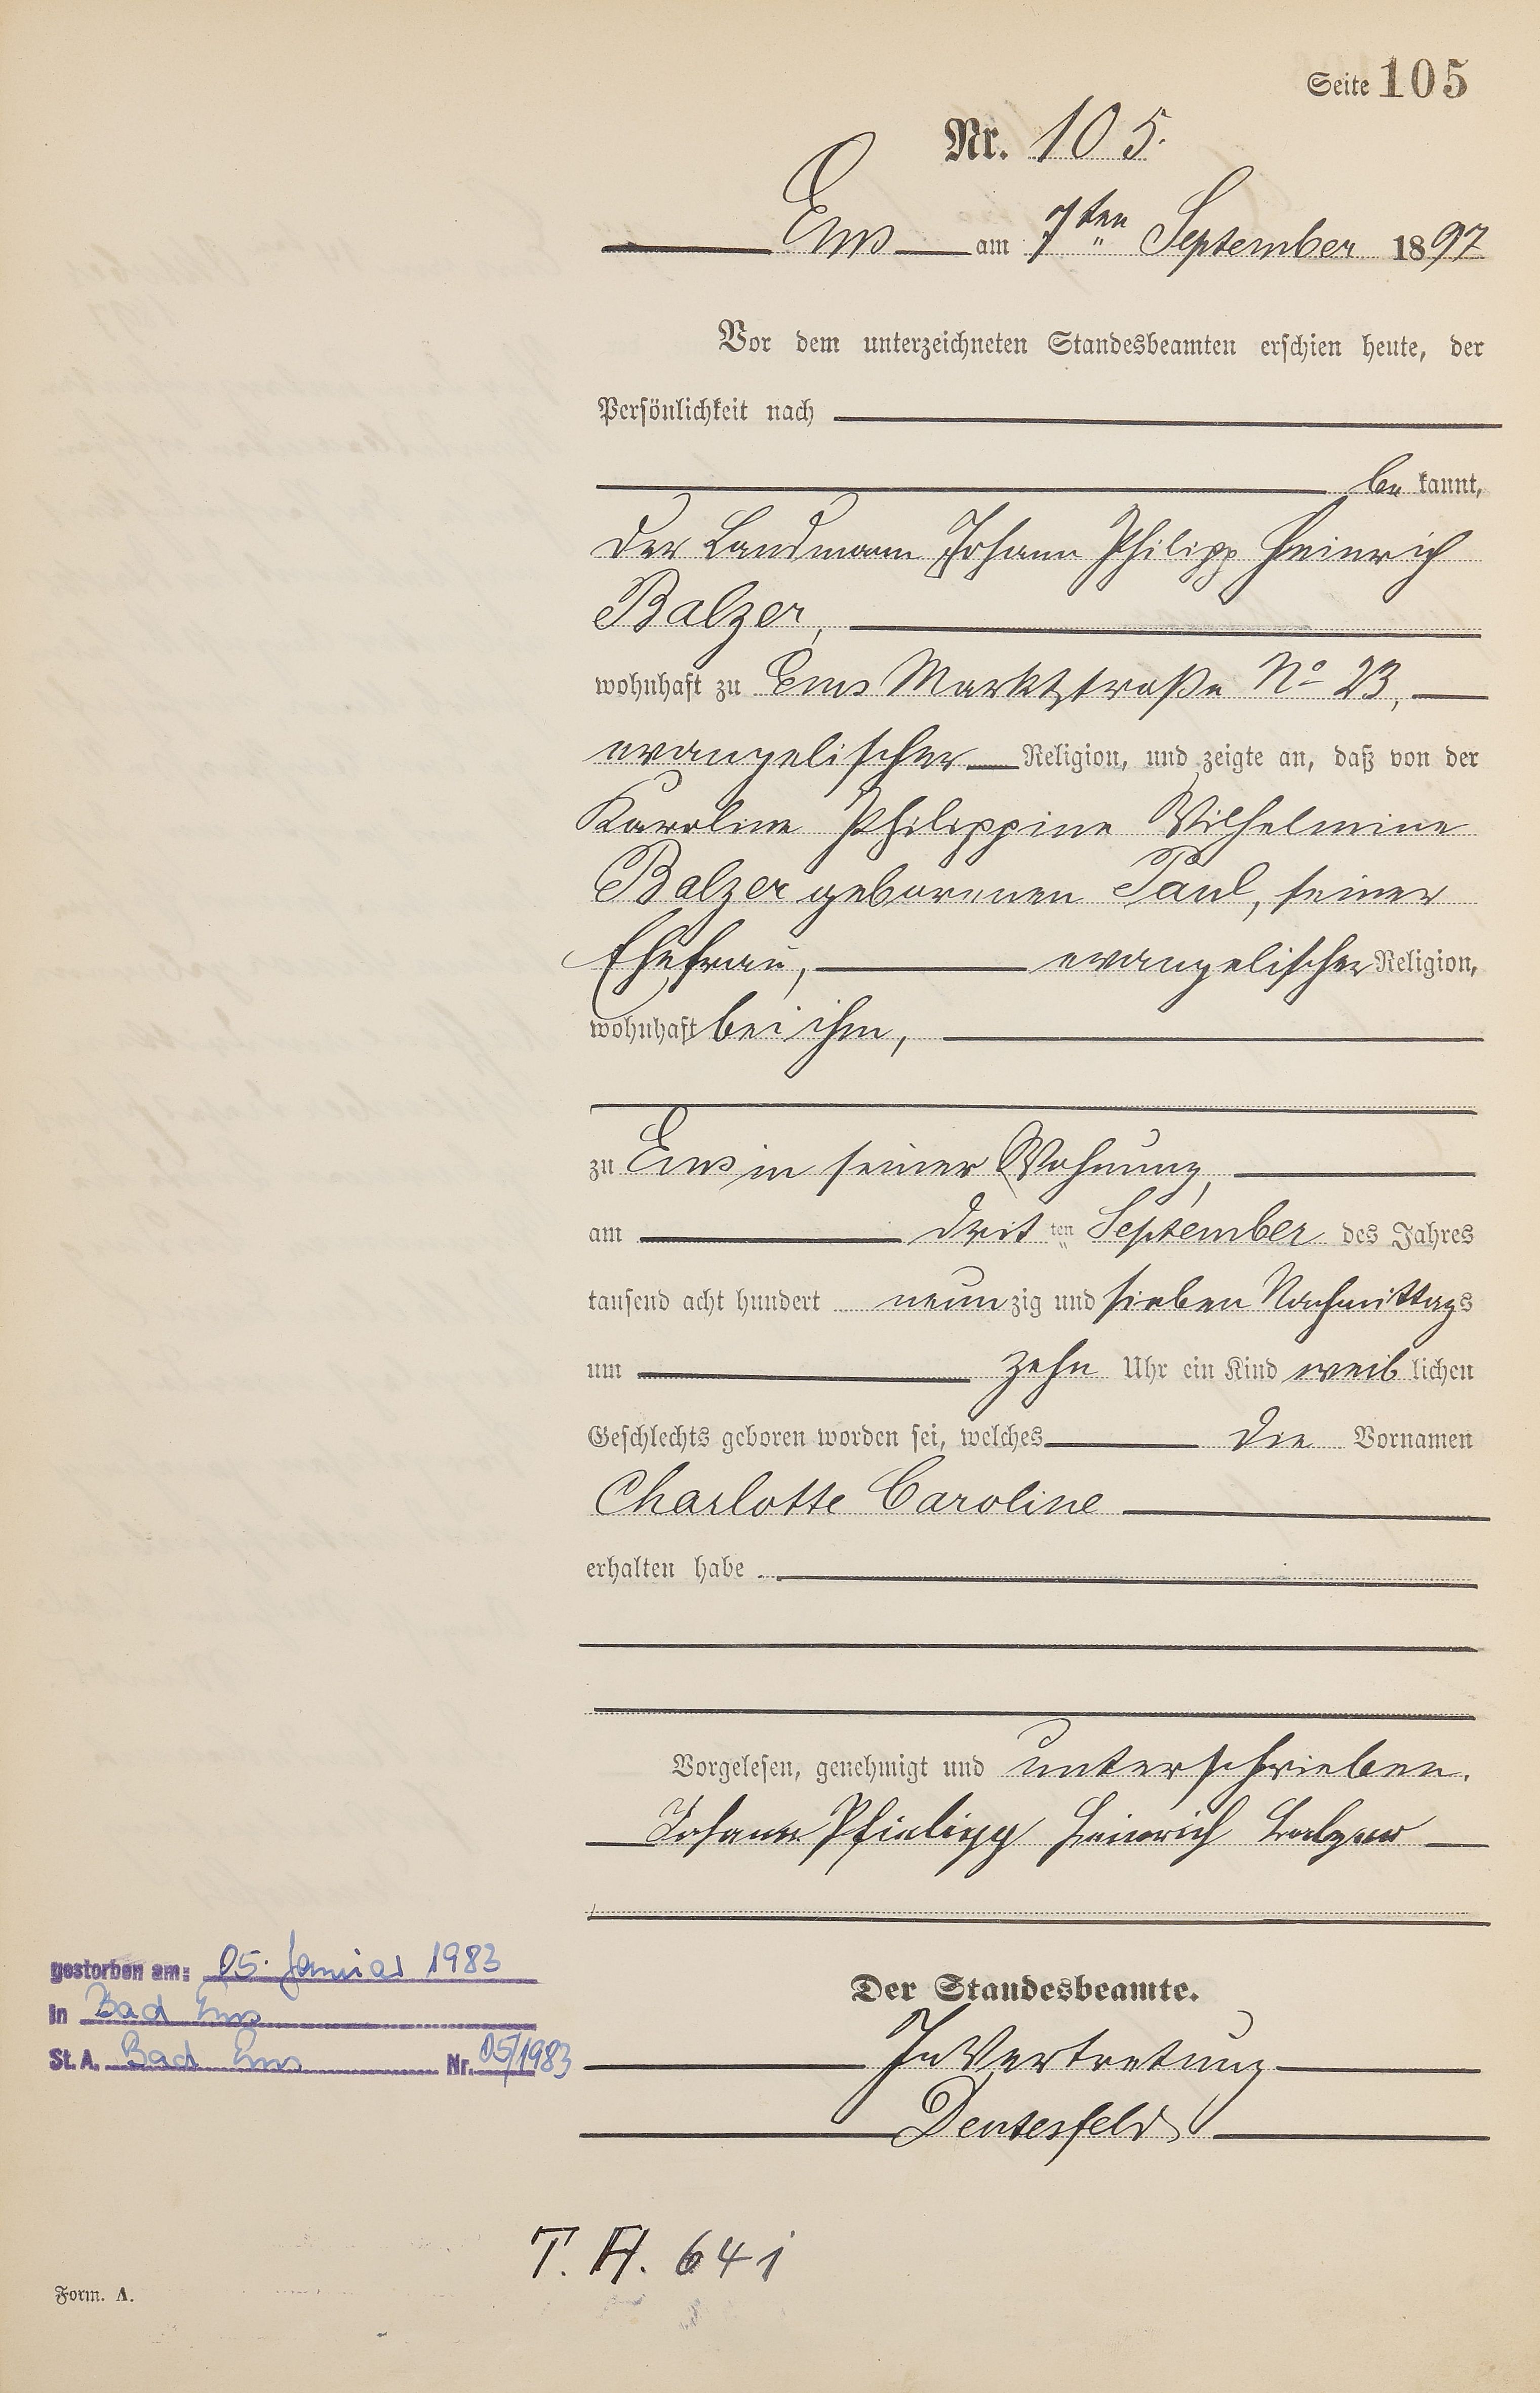 Seite 105
Nr. 105.
Ems am 7ten September 1897
Vor dem unterzeichneten Standesbeamten erschien heute, der
Persönlichkeit nach
be kannt,
der Landmann Johann Philipp Heinrich
Balzer,
wohnhaft zu Ems Marktstraße No 23,
evangelischer Religion, und zeigte an, daß von der
Karoline Philippine Wilhelmine
Balzer geborenen Paul, seiner
Ehefrau, evangelischer Religion,
wohnhaft bei ihm,
zu Ems in seiner Wohnung,
am drit ten September des Jahres
tausend acht hundert neun zig und sieben Nachmittags
um zehn Uhr ein Kind weib lichen
Geschlechts geboren worden sei, welches die Vornamen
Charlotte Caroline
erhalten habe
Vorgelesen, genehmigt und unterschrieben.
Johann Phielipp Heinrich Balzer
gestorben am: 05. Januar 1983
in Bad Ems
St. A. Bad Ems Nr. 05/1983
Der Standesbeamte.
In Vertretung
Deutesfeld
T. H. 641
Form. A.